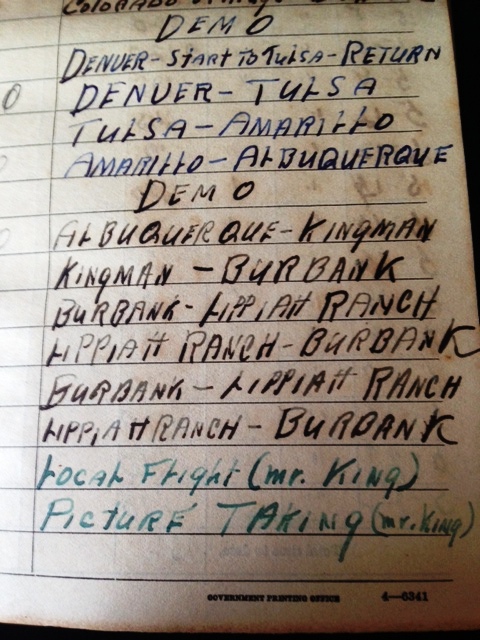 COLORADO
DEMO
DENVER - START TO TULSA - RETURN
0 DENVER - TULSA
TULSA - AMARILLO
AMARILLO - ALBUQUERQUE
DEMO
ALBUQUERQUE - KINGMAN
KINGMAN - BURBANK
BURBANK - LIPPIATT RANCH
LIPPIATT RANCH - BURBANK
BURBANK - LIPPIATT RANCH
LIPPIATT RANCH - BURBANK
LOCAL FLIGHT (MR. KING)
PICTURE TAKING (MR. KING)
GOVERNMENT PRINTING OFFICE 4—6341